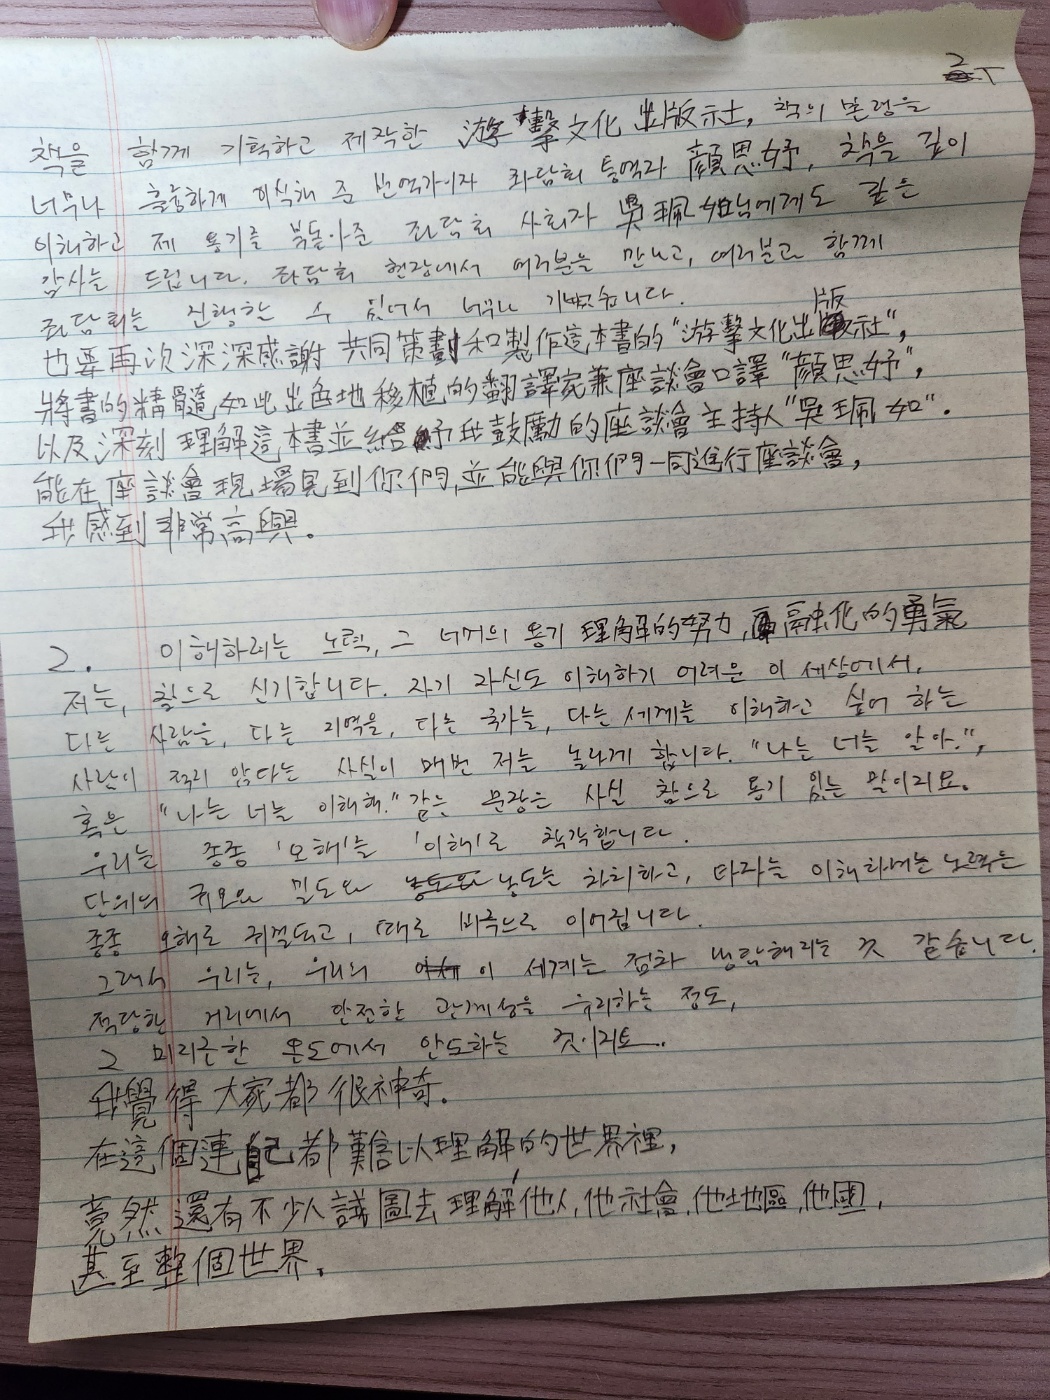 2
책을 함께 기획하고 제작한 游擊文化出版示土, 책의 본령을
너무나 훌륭하게 이식해 준 번역가이자 좌담회 통역자 顔思妤, 책을 깊이
이해하고 제 용기를 북돋아준 좌담회 사회자 吳珮如님에게도 깊은
감사를 드립니다. 좌담회 현장에서 여러분을 만나고, 여러분과 함께
좌담회를 진행할 수 있어서 너무나 기뻤습니다.
也要再次深深感謝 共同策劃和製作這本書的"游擊文化出版社",
將書的精髓如此出色地移植的翻譯家兼座談會口譯"顔思妤",
以及深刻理解這本書並給予我鼓勵的座談會主持人"吳珮如".
能在座談會現場見到你們,並能與你們一同進行座談會,
我感到非常高興。
2. 이해하려는 노력, 그 너머의 용기 理解的努力, 融化的勇氣
저는, 참으로 신기합니다. 자기 자신도 이해하기 어려운 이 세상에서,
다른 사람을, 다른 지역을, 다른 국가를, 다른 세계를 이해하고 싶어 하는
사람이 적지 않다는 사실이 매번 저를 놀라게 합니다. "나는 너를 알아.",
혹은 "나는 너를 이해해." 같은 문장은 사실 참으로 용기 있는 말이지요.
우리는 종종 '오해'를 '이해'로 착각합니다.
단위의 규모와 밀도와 농도를 차치하고, 타자를 이해하려는 노력은
종종 오해로 귀결되고, 때로 비극으로 이어집니다.
그래서 우리는, 우리의 이 세계는 점차 냉담해지는 것 같습니다.
적당한 거리에서 안전한 관계성을 유지하는 정도,
그 미지근한 온도에서 안도하는 것이지요.
我覺得大家都很神奇.
在這個連自己都難以理解的世界裡,
竟然還有不少人試圖去理解他人,他社會,他地區,他國,
甚至整個世界.